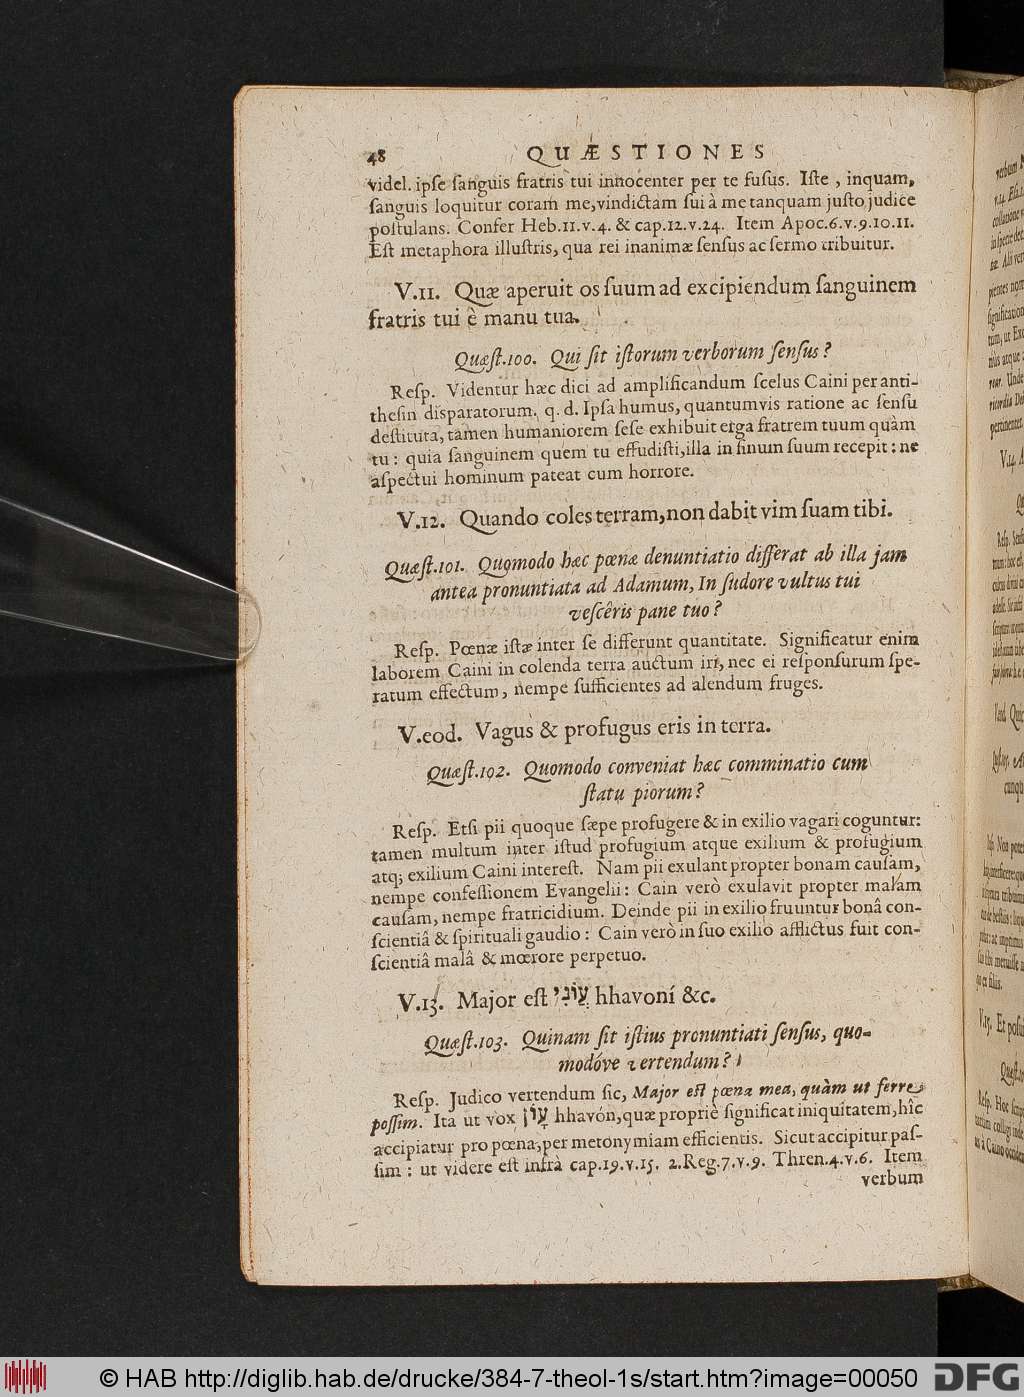 48 QUÆSTIONES
videl. ipſe ſanguis fratris tui innocenter per te fuſus. Iſte, inquam,
ſanguis loquitur coram me, vindictam ſui à me tanquam juſto judice
poſtulans. Confer Heb.11.v.4. & cap.12.v.24. Item Apoc.6.v.9.10.11.
Eſt metaphora illuſtris, qua rei inanimæ ſenſus ac ſermo tribuitur.
V.11. Quæ aperuit os ſuum ad excipiendum ſanguinem
fratris tui è manu tua.
Quæſt.100. Qui ſit iſtorum verborum ſenſus?
Reſp. Videntur hæc dici ad amplificandum ſcelus Caini per anti-
theſin diſparatorum. q. d. Ipſa humus, quantumvis ratione ac ſenſu
deſtituta, tamen humaniorem ſeſe exhibuit erga fratrem tuum quàm
tu: quia ſanguinem quem tu effudiſti, illa in ſinum ſuum recepit: ne
aſpectui hominum pateat cum horrore.
V.12. Quando coles terram, non dabit vim ſuam tibi.
Quæſt.101. Quomodo hæc pœnæ denuntiatio differat ab illa jam
antea pronuntiata ad Adamum, In ſudore vultus tui
veſcêris pane tuo?
Reſp. Pœnæ iſtæ inter ſe differunt quantitate. Significatur enim
laborem Caini in colenda terra auctum iri, nec ei reſponſurum ſpe-
ratum effectum, nempe ſufficientes ad alendum fruges.
V.eod. Vagus & profugus eris in terra.
Quæſt.102. Quomodo conveniat hæc comminatio cum
ſtatu piorum?
Reſp. Etſi pii quoque ſæpe profugere & in exilio vagari coguntur:
tamen multum inter iſtud profugium atque exilium & profugium
atq; exilium Caini intereſt. Nam pii exulant propter bonam cauſam,
nempe confeſſionem Evangelii: Cain verò exulavit propter malam
cauſam, nempe fratricidium. Deinde pii in exilio fruuntur bonâ con-
ſcientiâ & ſpirituali gaudio: Cain verò in ſuo exilio afflictus fuit con-
ſcientiâ malâ & mœrore perpetuo.
V.13. Major eſt עֲוֹנִי hhavoní &c.
Quæſt.103. Quinam ſit iſtius pronuntiati ſenſus, quo-
modóve vertendum?
Reſp. Judico vertendum ſic, Major eſt pœna mea, quàm ut ferre
poſſim. Ita ut vox עָוֹן hhavón, quæ propriè ſignificat iniquitatem, hîc
accipiatur pro pœna, per metonymiam efficientis. Sicut accipitur paſ-
ſim: ut videre eſt infrà cap.19.v.15. 2.Reg.7.v.9. Thren.4.v.6. Item
verbum
© HAB http://diglib.hab.de/drucke/384-7-theol-1s/start.htm?image=00050 DFG